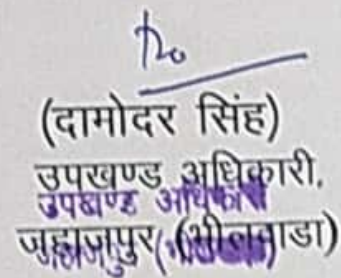 (दामोदर सिंह)
उपखण्ड अधिकारी,
उपखण्ड अधिकारी
जहाजपुर (भीलवाडा)